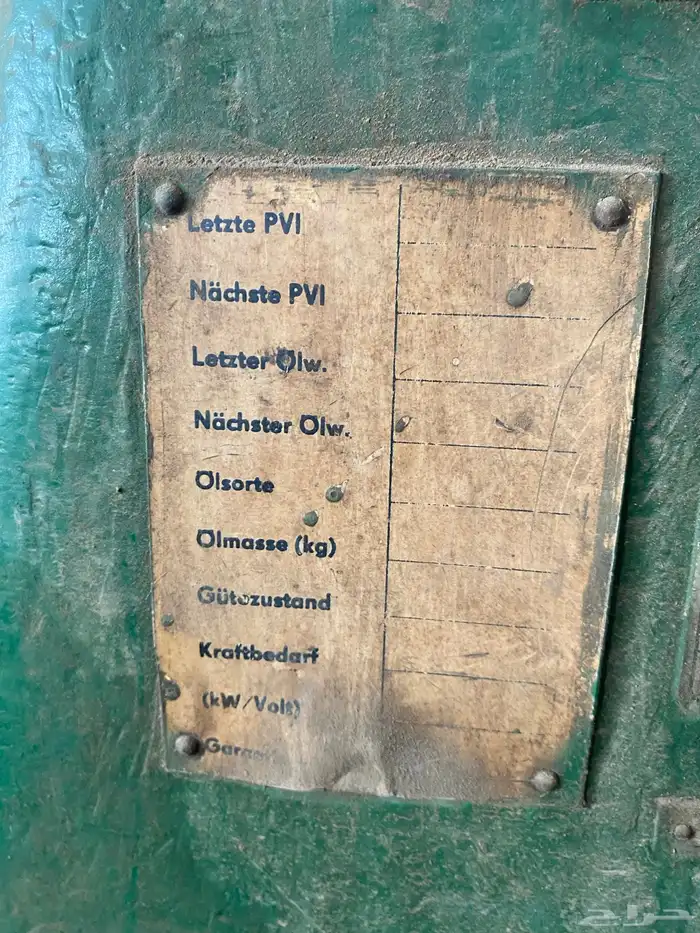 Letzte PVI
Nächste PVI
Letzter Ölw.
Nächster Ölw.
Ölsorte
Ölmasse (kg)
Gütezustand
Kraftbedarf
(kW/Volt)
حراج